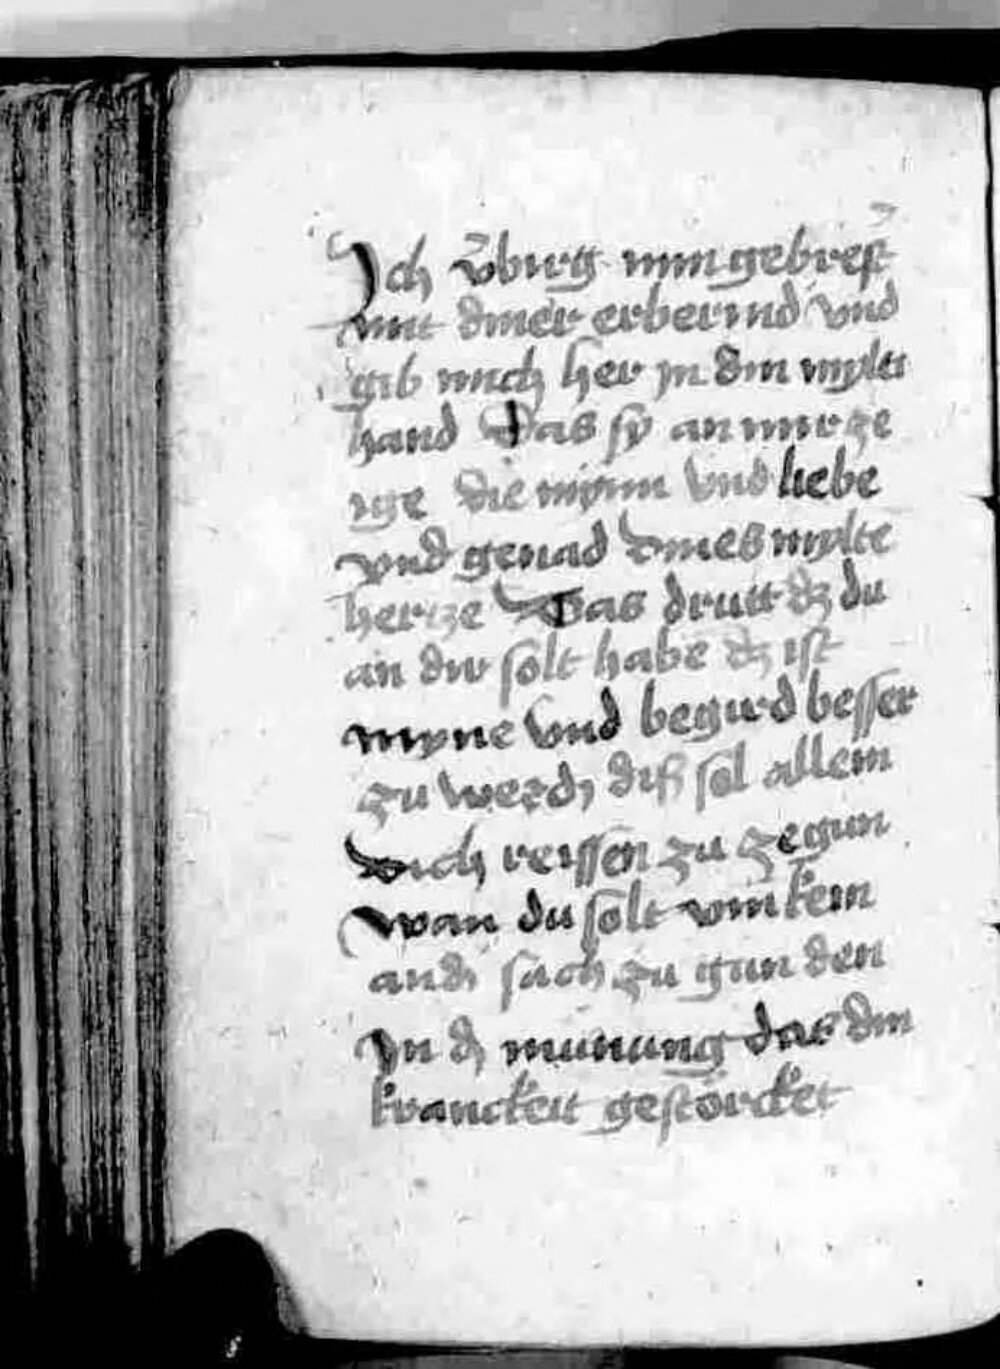 Jch v̈birg min gebrest
mit diner erbermd vnd
gib mich her jn din mylti
hand Das sy an mir ze
ige die mynn vnd liebe
vnd genad dines mylte
hertze Das dritt dz du
an dir solt habe dz ist
myne vnd begird besser
zu werdē diß sol allein
dich reissen zu zegun
wan du solt vm kein
andr̄ sach zu gan den
Jn dr̄ meinung das din
kranckeit gestörcket